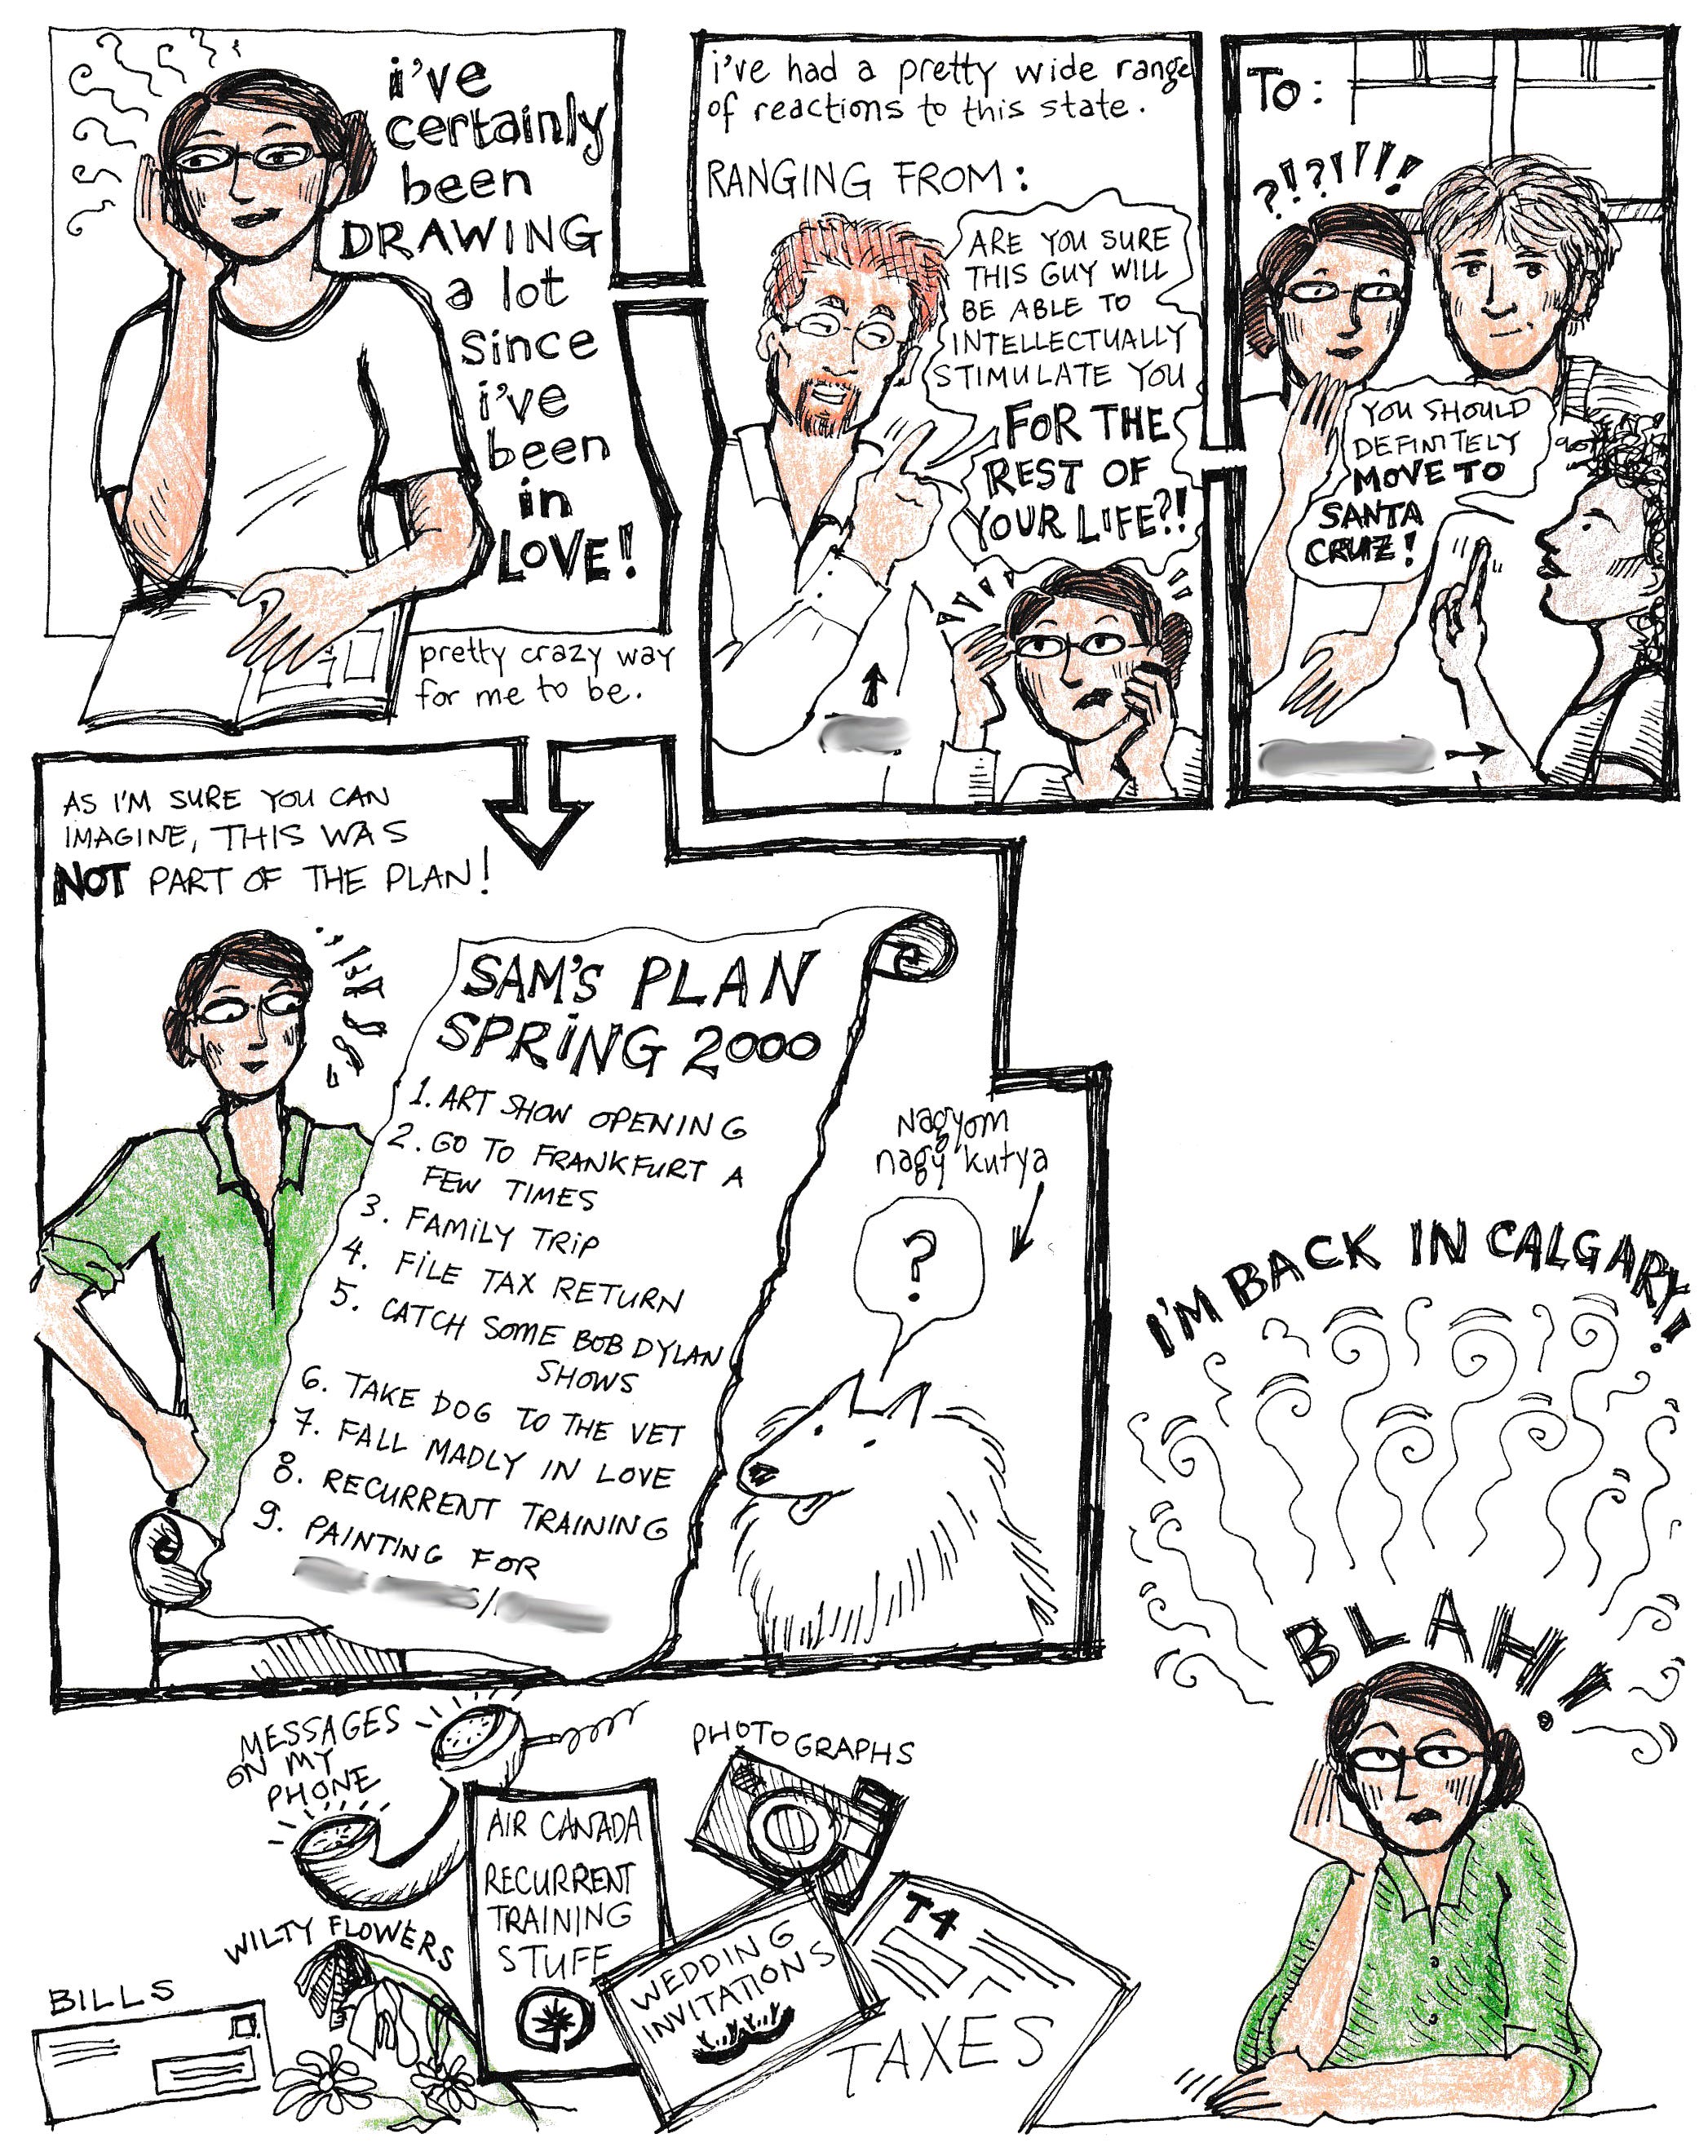 i've
certainly
been
DRAWING
a lot
since
i've
been
in
LOVE!
pretty crazy way
for me to be.
i've had a pretty wide range
of reactions to this state.
RANGING FROM:
ARE YOU SURE
THIS GUY WILL
BE ABLE TO
INTELLECTUALLY
STIMULATE YOU
FOR THE
REST OF
YOUR LIFE?!
To:
?!?!!!!
YOU SHOULD
DEFINITELY
MOVE TO
SANTA
CRUZ!
AS I'M SURE YOU CAN
IMAGINE, THIS WAS
NOT PART OF THE PLAN!
SAM'S PLAN
SPRiNG 2000
1. ART SHOW OPENING
2. GO TO FRANKFURT A
FEW TIMES
3. FAMiLY TRiP
4. FiLE TAX RETURN
5. CATCH SOME BOB DYLAN
SHOWS
6. TAKE DOG TO THE VET
7. FALL MADLY IN LOVE
8. RECURRENT TRAINING
9. PAINTING FOR
Nagyom
nagy kutya
?
I'M BACK IN CALGARY!
BLAH!
MESSAGES
ON MY
PHONE
PHOTOGRAPHS
AIR CANADA
RECURRENT
TRAINING
STUFF
WILTY FLOWERS
BILLS
WEDDING
INVITATIONS
T4
TAXES